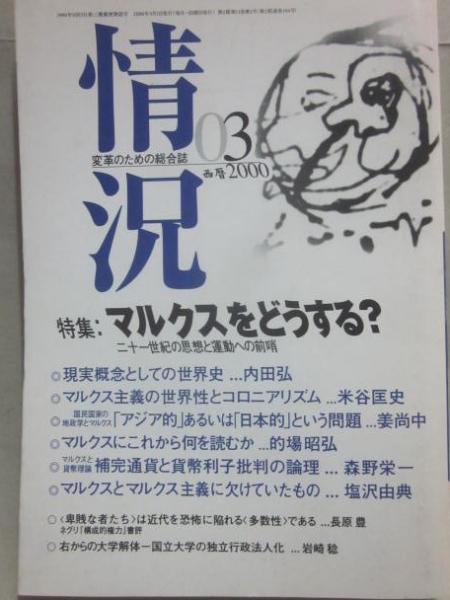 情況
03
変革のための総合誌
西暦2000
特集:マルクスをどうする?
二十一世紀の思想と運動への前哨
◎現実概念としての世界史 …内田弘
◎マルクス主義の世界性とコロニアリズム …米谷匡史
◎国民国家の地政学とマルクス「アジア的」あるいは「日本的」という問題 …姜尚中
◎マルクスにこれから何を読むか …的場昭弘
◎マルクスと貨幣理論 補完通貨と貨幣利子批判の論理 … 森野栄一
◎マルクスとマルクス主義に欠けていたもの … 塩沢由典
○〈卑賤な者たち〉は近代を恐怖に陥れる〈多数性〉である …長原 豊
ネグリ「構成的権力」書評
○右からの大学解体―国立大学の独立行政法人化 …岩崎 稔